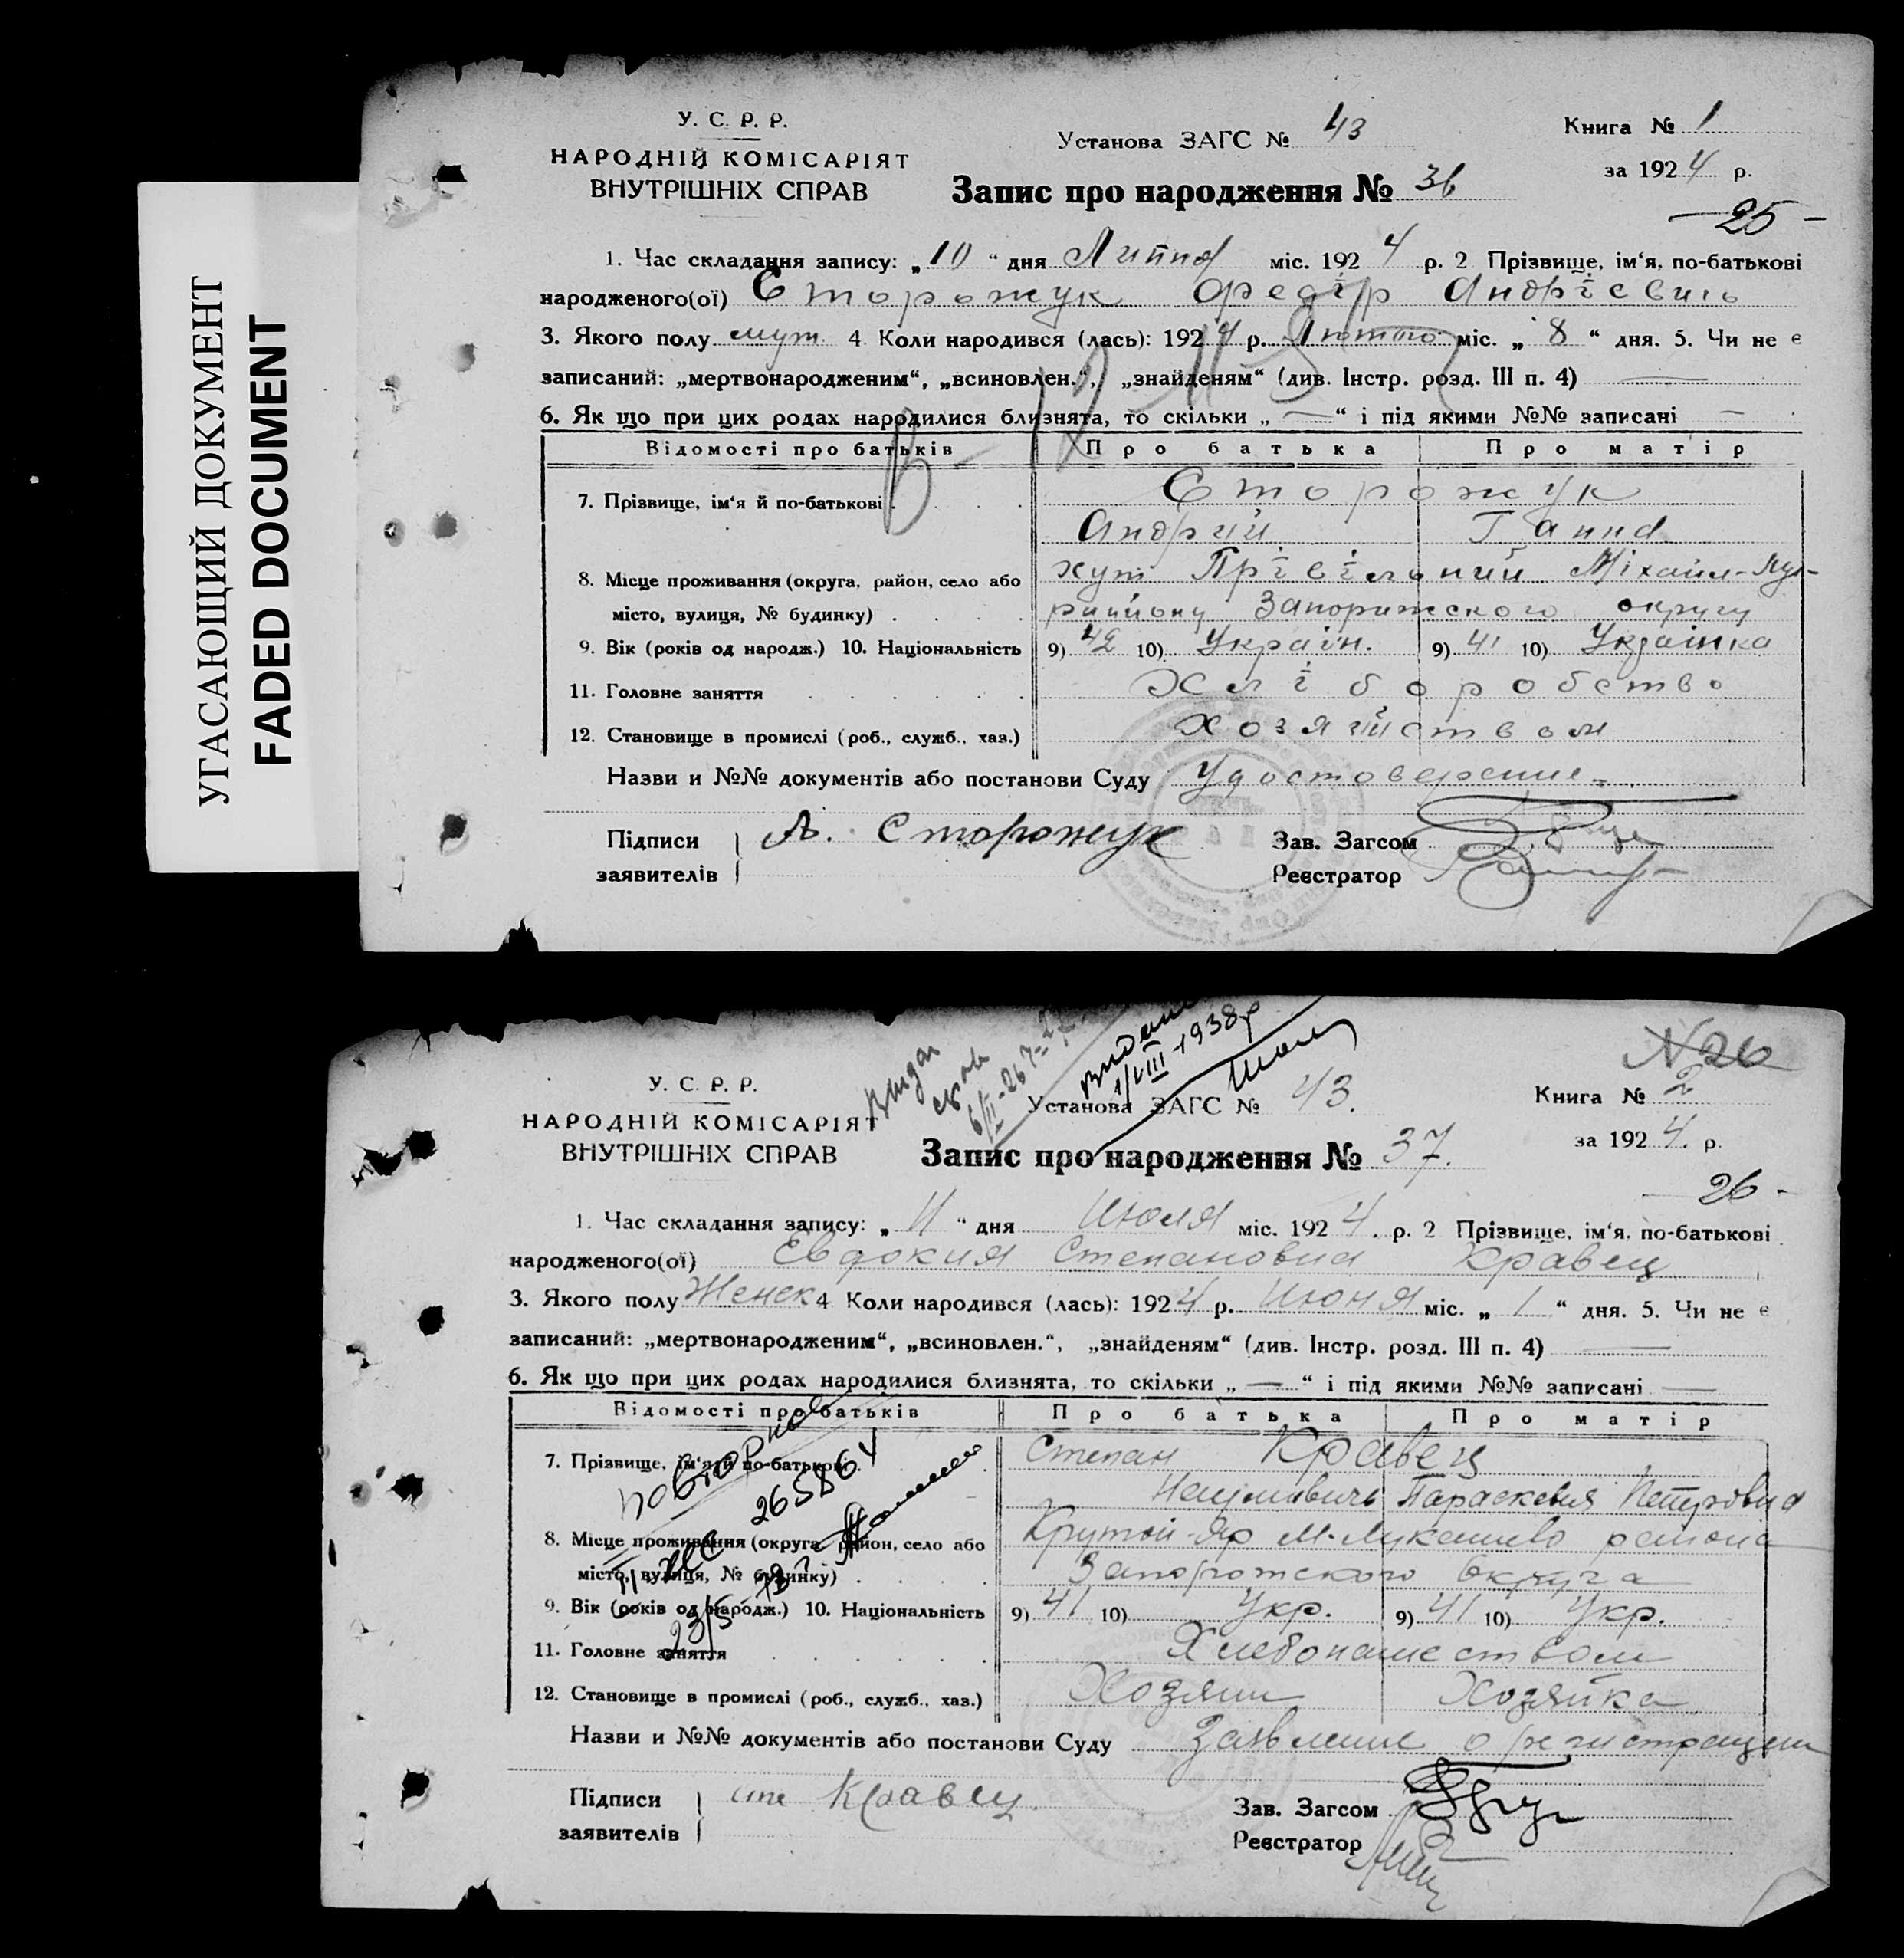 УГАСАЮЩИЙ ДОКУМЕНТ
FADED DOCUMENT
У. С. Р. Р.
НАРОДНІЙ КОМІСАРІЯТ
ВНУТРІШНІХ СПРАВ
Установа ЗАГС № 43
Книга № 1
за 1924 р.
Запис про народження № 36
— 25 —
1. Час складання запису: „10“ дня Липня міс. 1924 р. 2 Прізвище, ім‘я, по-батькові
народженого(ої) Сторожук Федір Андрієвичь
3. Якого полу муж. 4 Коли народився (лась): 1924 р. Лютого міс. „8“ дня. 5. Чи не є
записаний: „мертвонародженим“, „всиновлен.“, „знайденям“ (див. Інстр. розд. III п. 4) —
6. Як що при цих родах народилися близнята, то скільки „—“ і під якими №№ записані —
Відомості про батьків Про батька Про матір
7. Прізвище, ім‘я й по-батькові Сторожук
Андрий Ганна
8. Місце проживання (округа, район, село або хут Прівільний Міхайл-Лук-
місто, вулиця, № будинку) району Запорижского округу
9. Вік (років од народж.) 10. Національність 9) 42 10) Україн. 9) 41 10) Українка
11. Головне заняття Хліборобство
12. Становище в промислі (роб., служб., хаз.) хозяйством
Назви и №№ документів або постанови Суду Удостоверение
Підписи А. Сторожук Зав. Загсом
заявителів Реєстратор
Видано
1/VIII-1938р
№26
У. С. Р. Р.
НАРОДНІЙ КОМІСАРІЯТ
ВНУТРІШНІХ СПРАВ
Установа ЗАГС № 43.
Книга № 2
за 1924. р.
Запис про народження № 37.
26 -
1. Час складання запису: „11“ дня Июля міс. 1924. р. 2 Прізвище, ім‘я, по-батькові
народженого(ої) Евдокия Степановна Кравец
3. Якого полу Женск 4 Коли народився (лась): 1924 р. Июня міс. „1“ дня. 5. Чи не є
записаний: „мертвонародженим“, „всиновлен.“, „знайденям“ (див. Інстр. розд. III п. 4) —
6. Як що при цих родах народилися близнята, то скільки „—“ і під якими №№ записані —
Відомості про батьків Про батька Про матір
повторное
7. Прізвище, ім‘я й по-батькові Степан Кравец
Параскевия Петровна
8. Місце проживання (округа, район, село або Крутой-Яр М-Лукашево района
місто, вулиця, № будинку) Запорожского Округа
9. Вік (років од народж.) 10. Національність 9) 41 10) Укр. 9) 41 10) Укр.
11. Головне заняття Хлебопашеством
12. Становище в промислі (роб., служб., хаз.) Хозяин Хозяйка
Назви и №№ документів або постанови Суду Заявление о регистрации
Підписи Кравец Зав. Загсом
заявителів Реєстратор